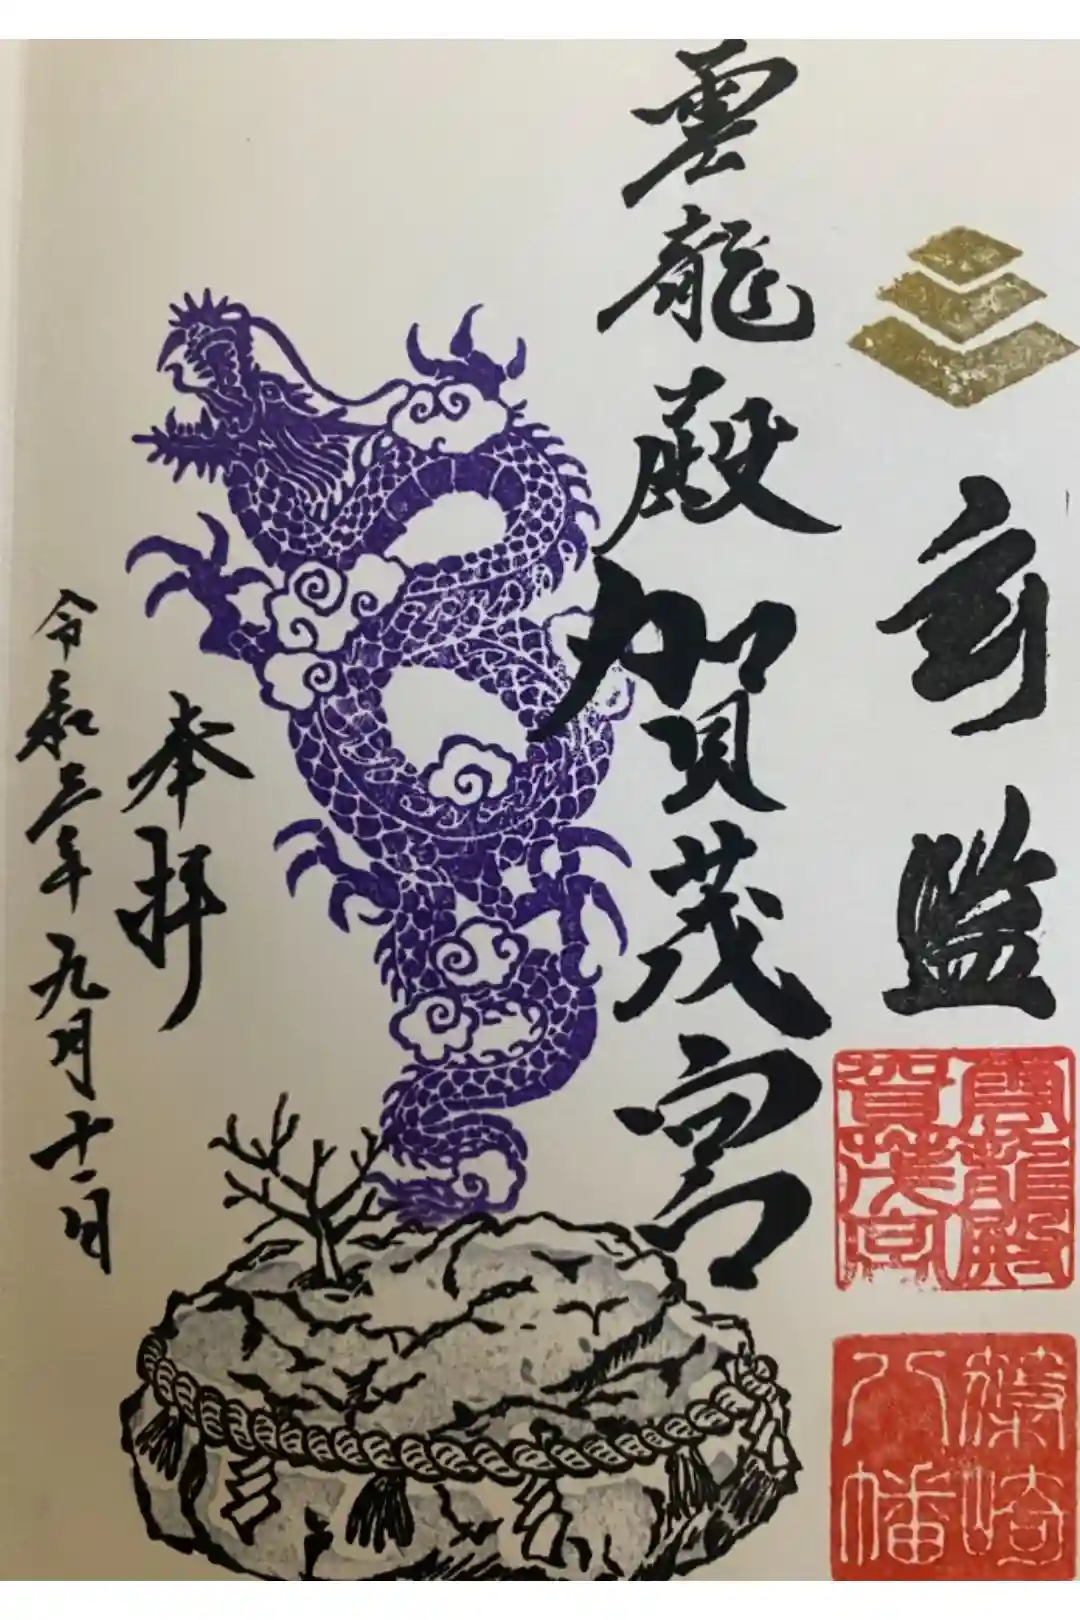 雲龍殿賀茂宮
奉拝
令和三年九月十一日
雲龍殿
賀茂宮
篠崎
八幡